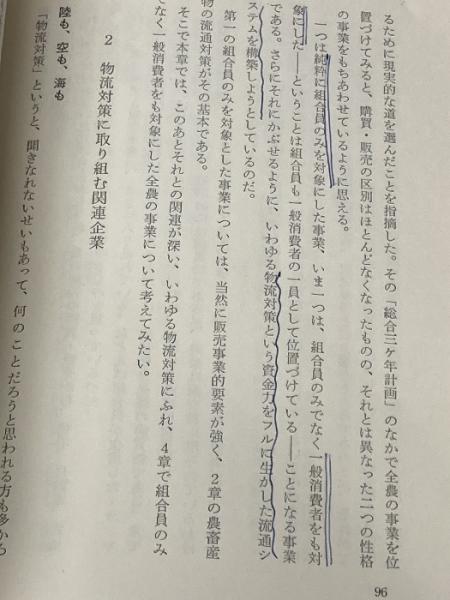 るために現実的な道を選んだことを指摘した。その「総合三ヶ年計画」のなかで全農の事業を位
置づけてみると、購買・販売の区別はほとんどなくなったものの、それとは異なった二つの性格
の事業をもちあわせているように思える。
一つは純粋に組合員のみを対象にした事業、いま一つは、組合員のみでなく一般消費者をも対
象にした――ということは組合員も一般消費者の一員として位置づけている――ことになる事業
である。さらにそれにかぶせるように、いわゆる物流対策という資金力をフルに生かした流通シ
ステムを構築しようとしているのだ。
第一の組合員のみを対象とした事業については、当然に販売事業的要素が強く、2章の農畜産
物の流通対策がその基本である。
そこで本章では、このあとそれとの関連が深い、いわゆる物流対策にふれ、4章で組合員のみ
でなく一般消費者をも対象にした全農の事業について考えてみたい。
2 物流対策に取り組む関連企業
陸も、空も、海も
「物流対策」というと、聞きなれないせいもあって、何のことだろうと思われる方も多から
96